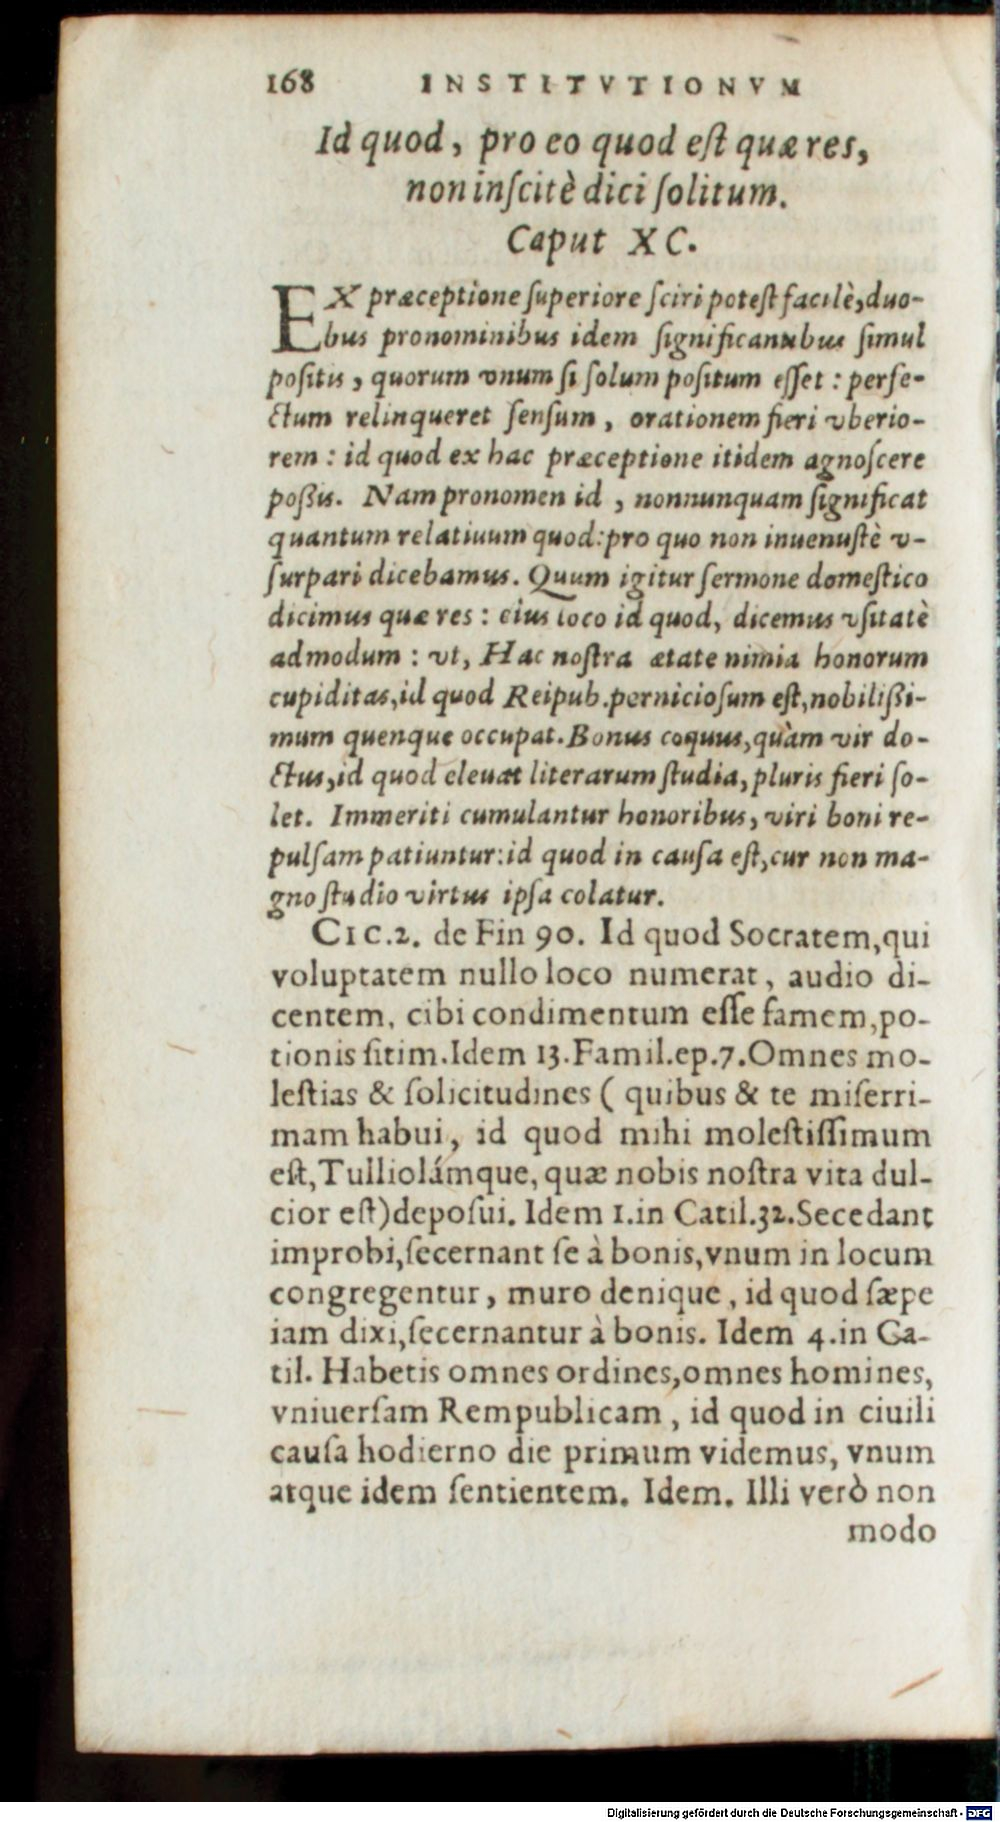 168 INSTITVTIONVM
Id quod, pro eo quod eſt quæ res,
non inſcitè dici ſolitum.
Caput XC.
EX præceptione ſuperiore ſciri poteſt facilè, duo-
bus pronominibus idem ſignificantibus ſimul
poſitis, quorum vnum ſi ſolum poſitum eſſet: perfe-
ctum relinqueret ſenſum, orationem fieri vberio-
rem: id quod ex hac præceptione itidem agnoſcere
poßis. Nam pronomen id, nonnunquam ſignificat
quantum relatiuum quod: pro quo non inuenuſtè v-
ſurpari dicebamus. Quum igitur ſermone domeſtico
dicimus quæ res: eius loco id quod, dicemus vſitatè
admodum: vt, Hac noſtra ætate nimia honorum
cupiditas, id quod Reipub. pernicioſum eſt, nobilißi-
mum quenque occupat. Bonus coquus, quàm vir do-
ctus, id quod eleuat literarum ſtudia, pluris fieri ſo-
let. Immeriti cumulantur honoribus, viri boni re-
pulſam patiuntur: id quod in cauſa eſt, cur non ma-
gno ſtudio virtus ipſa colatur.
CIC. 2. de Fin 90. Id quod Socratem, qui
voluptatem nullo loco numerat, audio di-
centem, cibi condimentum eſſe famem, po-
tionis ſitim. Idem 13. Famil. ep. 7. Omnes mo-
leſtias & ſolicitudines ( quibus & te miſerri-
mam habui, id quod mihi moleſtiſſimum
eſt, Tulliolámque, quæ nobis noſtra vita dul-
cior eſt) depoſui. Idem 1. in Catil. 32. Secedant
improbi, ſecernant ſe à bonis, vnum in locum
congregentur, muro denique, id quod ſæpe
iam dixi, ſecernantur à bonis. Idem 4. in Ca-
til. Habetis omnes ordines, omnes homines,
vniuerſam Rempublicam, id quod in ciuili
cauſa hodierno die primum videmus, vnum
atque idem ſentientem. Idem. Illi verò non
modo
Digitalisierung gefördert durch die Deutsche Forschungsgemeinschaft - DFG